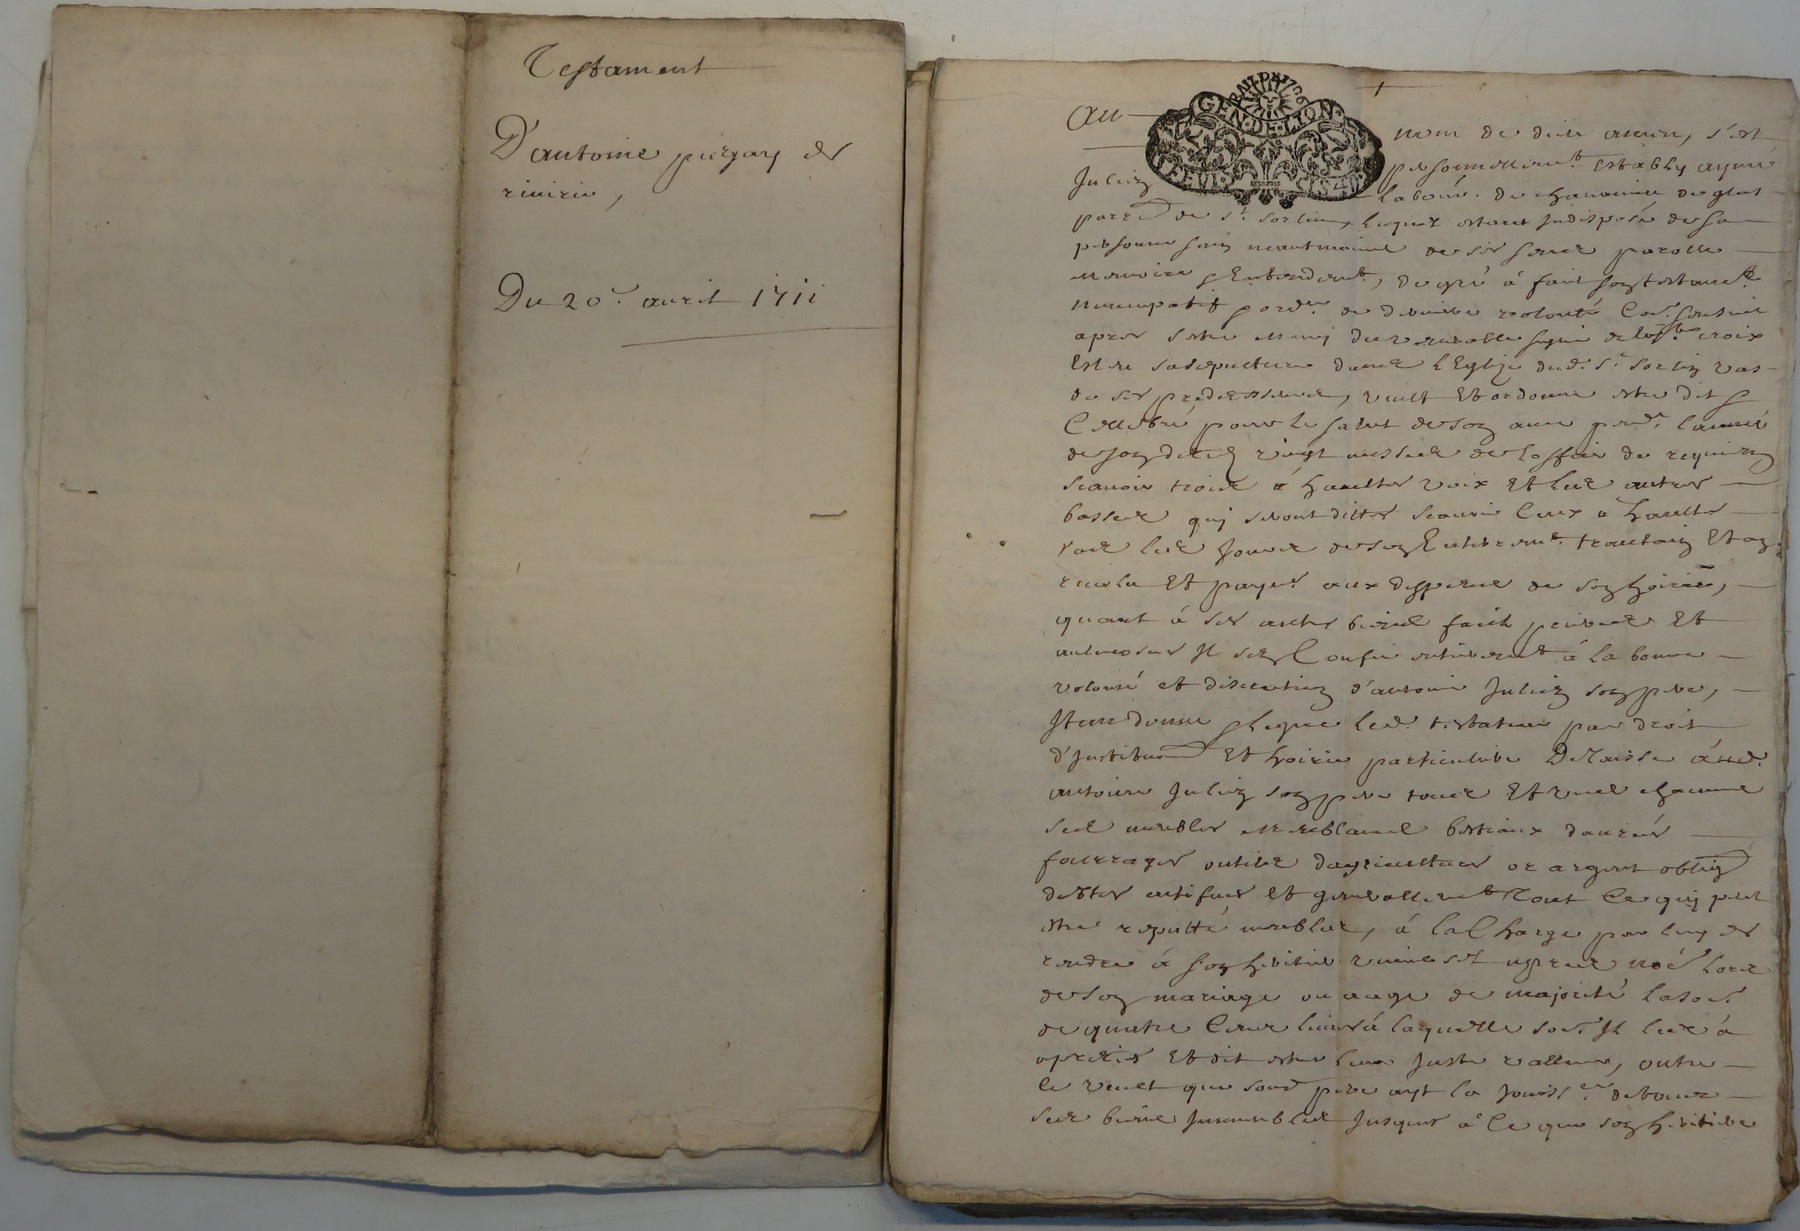 Testament
D'antoine piegay de
riuirie,
Du 20e. auril 1711
GEN·DE·LION
Au nom de dieu amen, s'est
Juliey personnellemt. estably aymé
labour. de
parre. de St. Sorlin, lequel estant Indisposé de sa
personne sain neantmoins de ses sens parolle
memoire & Entendemt., de gré à fait soy testamt.
nuncupatif & ordre. de derniere volonté Comme sensuit
apres s'estre muny du venerable signe de la ste. croix
Eslire sa sepulture dans l'Eglize dud. St. Sorlin vas
de ses predecesseurs, veult Et ordonne estre dit &
Cellebré pour le salut de soy ame pendt. l'année
de soy decez vingt messes de l'office de requiem
scauoir trois à haultes voix Et les autres
basses quj seront dittes scauoir Celles à haultes
voix les jours de soy Enterremt. trantain Et an
reuolu Et payés aux despens de soy hoirie,
quant à ses autres biens faits prieres Et
aulmosnes Il s'en Confie entieremt. à la bonne
volonté et discretion d'antoine Juliey soy pere,
Item donne & legue led. testateur par droit
d'Institution Et hoirie particuliere Delaisse aud.
antoine Juliey soy pere tous Et vns chacuns
ses meubles bestiaux danrées
fourrages outils dagriculture or argent oblig.
debtes actifues Et generallemt. Tout Ce quj peut
estre reputté meubles, à la Charge par luy de
rendre à soy heritier vniuersel apres nommé lors
de soy mariage ou aage de majorité la som.
de quatre Cens liures à laquelle som. Il les à
aprecies Et dit estre leur Juste valleur, outre
Ce veult que sond. pere ayt la Jouisse. de tous
ses biens Immeubles Jusques à Ce que soy heritier